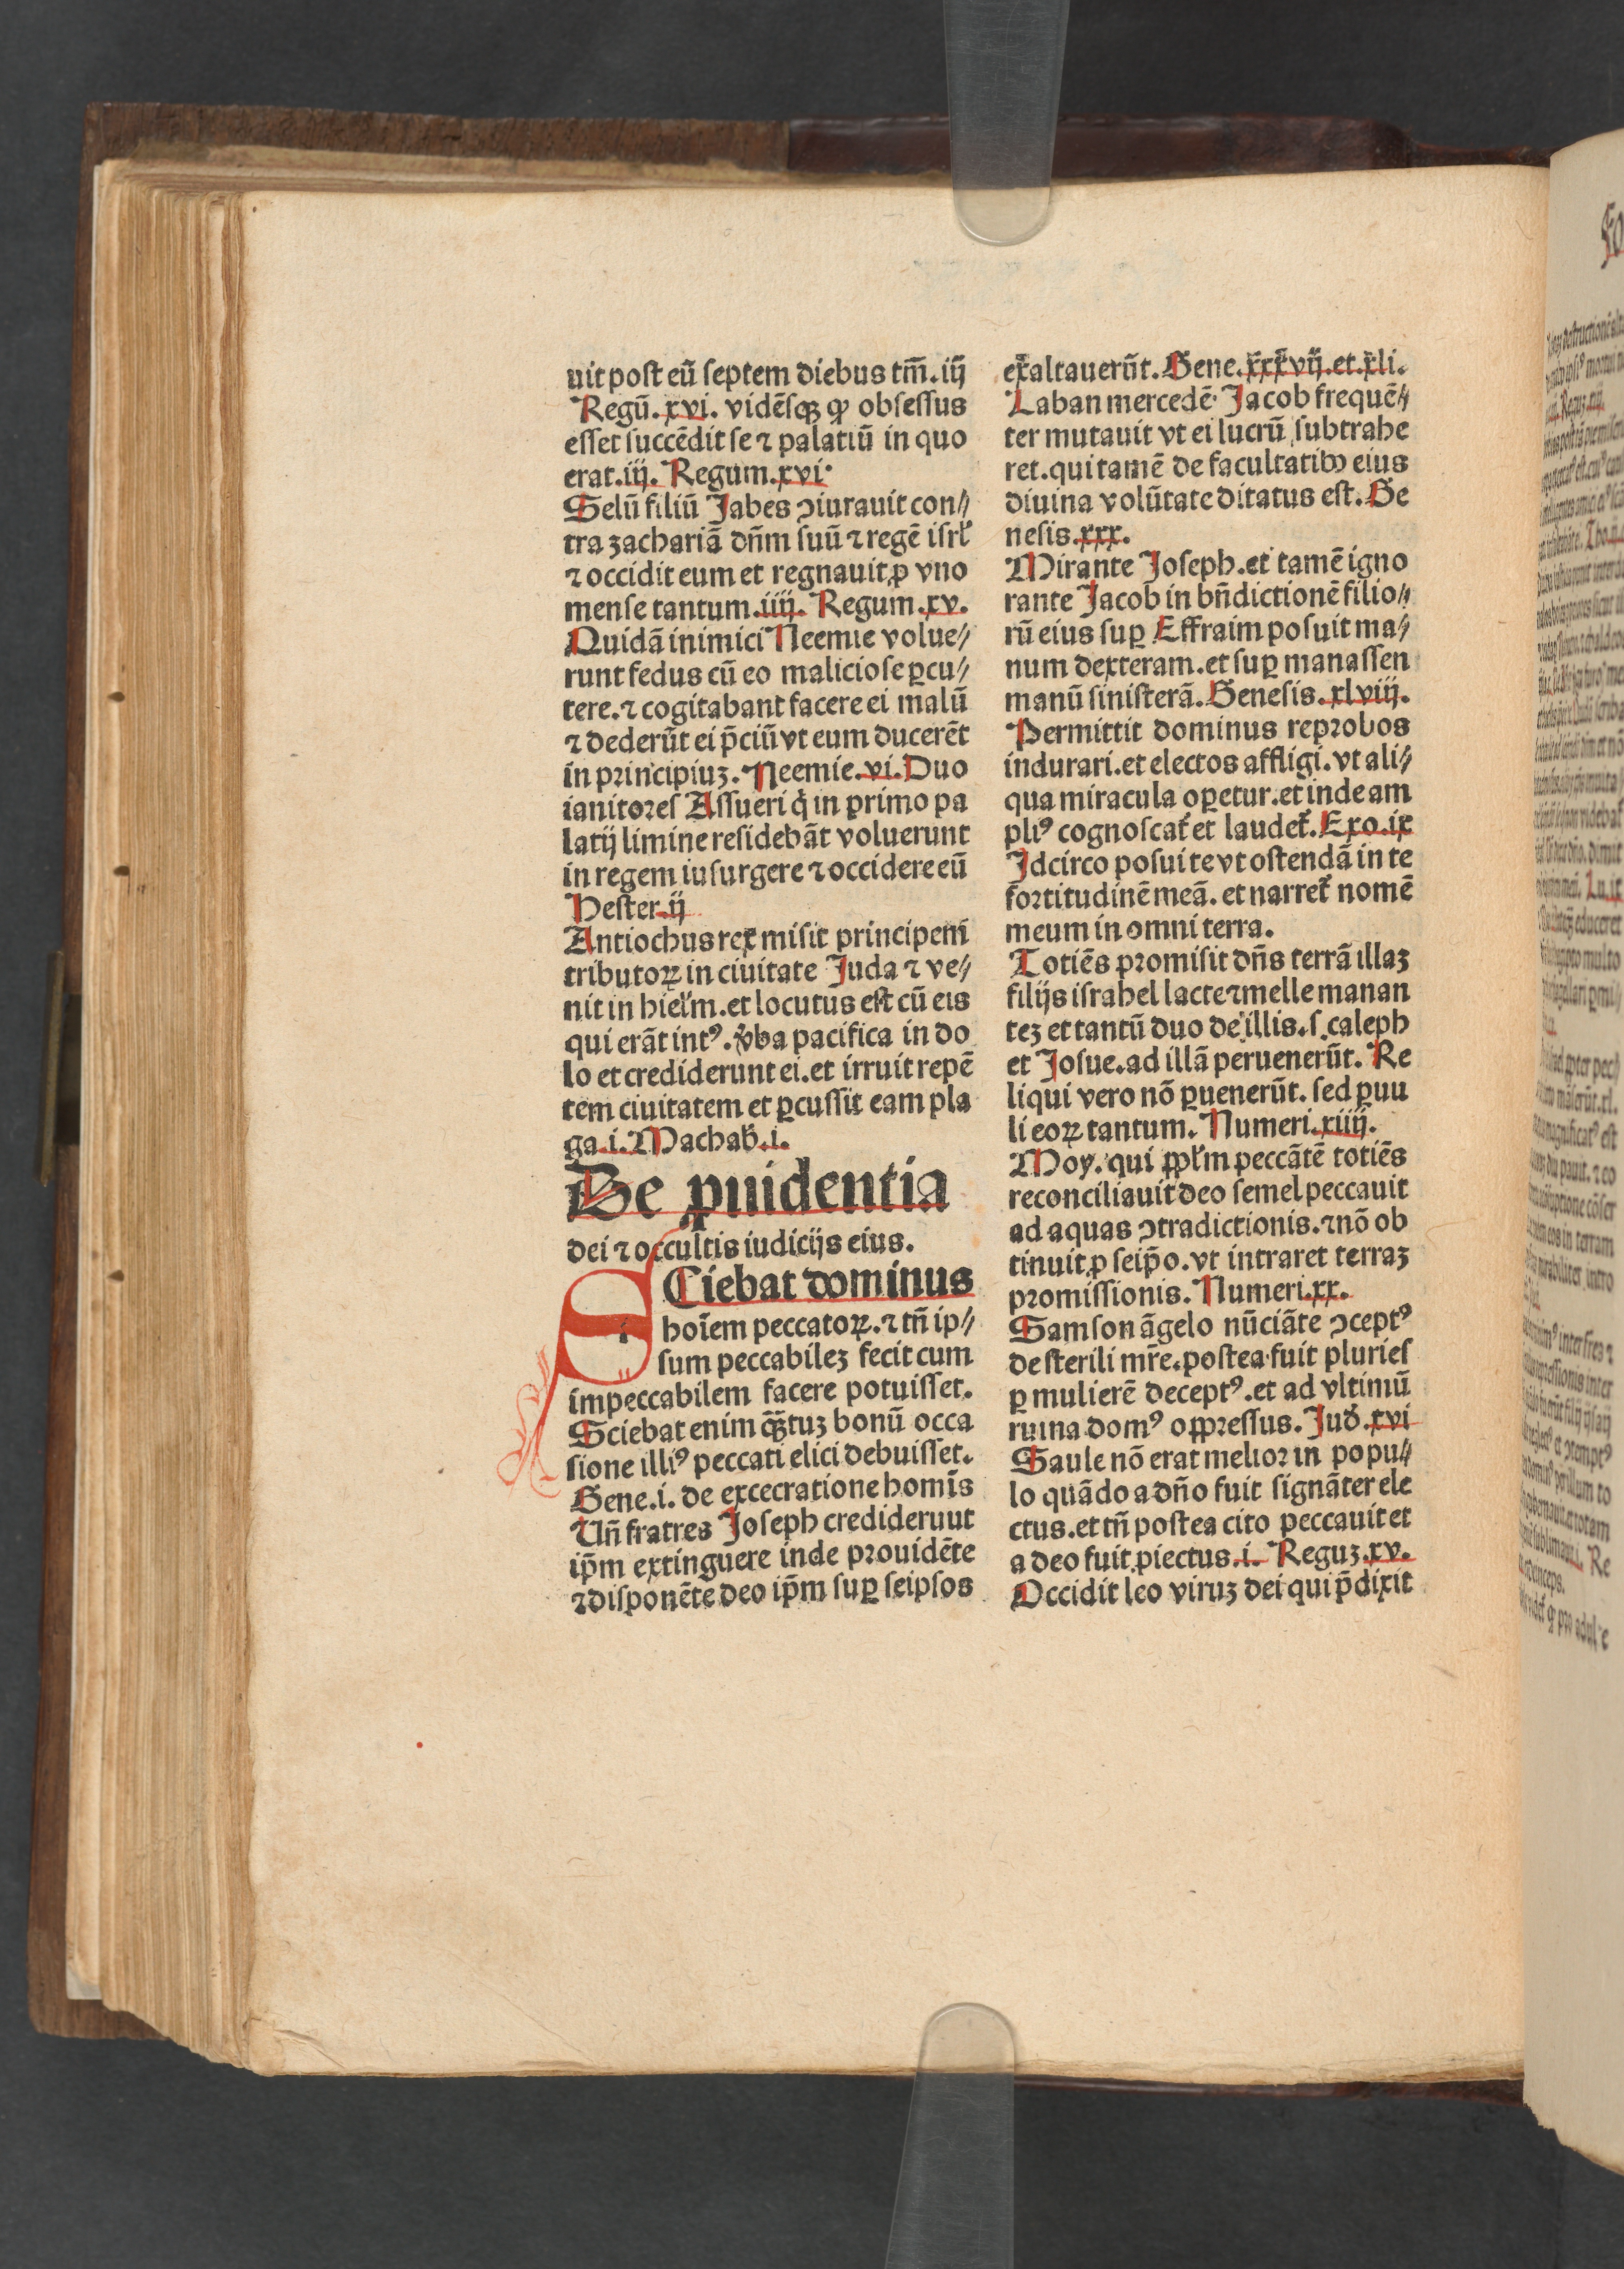 uit post eū septem diebus tm̄. iij
Regū. xvi. vidēsqꝫ ꝙ obsessus
esset succēdit se ⁊ palatiū in quo
erat. iij. Regum. xvi.
Selū filiū Jabes ↄiurauit con⸗
tra zachariā dn̄m suū ⁊ regē isrl̓
⁊ occidit eum et regnauit ꝓ vno
mense tantum. iiij. Regum. xv.
Quidā inimici Neemie volue⸗
runt fedus cū eo maliciose ꝑcu⸗
tere. ⁊ cogitabant facere ei malū
⁊ dederūt ei p̄ciū vt eum ducerēt
in principiuꝫ. Neemie. vi. Duo
ianitores Assueri q̇ in primo pa
latij limine residebāt voluerunt
in regem iusurgere ⁊ occidere eū
Hester. ij
Antiochus rex misit principem
tributoꝝ in ciuitate Juda ⁊ ve⸗
nit in hiel̓m. et locutus est cū eis
qui erāt intꝰ. v̓ba pacifica in do
lo et crediderunt ei. et irruit repē
tem ciuitatem et ꝑcussit eam pla
ga. i. Machab̓. i.
De ꝓuidentia
dei ⁊ occultis iudicijs eius.
SCiebat dominus
hoīem peccatoꝝ. ⁊ tn̄ ip⸗
sum peccabileꝫ fecit cum
impeccabilem facere potuisset.
Sciebat enim qꝫ̄tuꝫ bonū occa
sione illiꝰ peccati elici debuisset.
Gene. i. de excecratione homīs
Un̄ fratres Joseph crediderunt
ip̄m extinguere inde prouidēte
⁊ disponēte deo ip̄m suꝑ seipsos
exaltauerūt. Gene. xxxvij. et. xli.
Laban mercedē Jacob frequē⸗
ter mutauit vt ei lucrū subtrahe
ret. qui tamē de facultatibꝰ eius
diuina volūtate ditatus est. Ge
nesis. xxx.
Mirante Joseph. et tamē igno
rante Jacob in bn̄dictionē filio⸗
rū eius suꝑ Effraim posuit ma⸗
num dexteram. et suꝑ manassen
manū sinisterā. Genesis. xlviij.
Permittit dominus reprobos
indurari. et electos affligi. vt ali⸗
qua miracula oꝑetur. et inde am
pliꝰ cognoscat̓ et laudet̓. Exo. ix
Jdcirco posui te vt ostendā in te
fortitudinē meā. et narret̓ nomē
meum in omni terra.
Totiēs promisit dn̄s terrā illaꝫ
filijs israhel lacte ⁊ melle manan
teꝫ et tantū duo de illis. s. caleph
et Josue. ad illā peruenerūt. Re
liqui vero nō ꝑuenerūt. sed ꝑuu
li eoꝝ tantum. Numeri. xiiij.
Moy. qui ꝓpl̓m peccātē totiēs
reconciliauit deo semel peccauit
ad aquas ↄtradictionis. ⁊ nō ob
tinuit ꝓ seip̄o. vt intraret terraꝫ
promissionis. Numeri. xx.
Samson āgelo nūciāte ↄceptꝰ
de sterili mr̄e. postea fuit pluries
ꝑ mulierē deceptꝰ. et ad vltimū
ruina domꝰ oppressus. Jud̓. xvi
Saule nō erat melior in popu⸗
lo quādo a dn̄o fuit signāter ele
ctus. et tn̄ postea cito peccauit et
a deo fuit ꝓiectus. i. Reguꝫ. xv.
Occidit leo viruꝫ dei qui p̄dixit